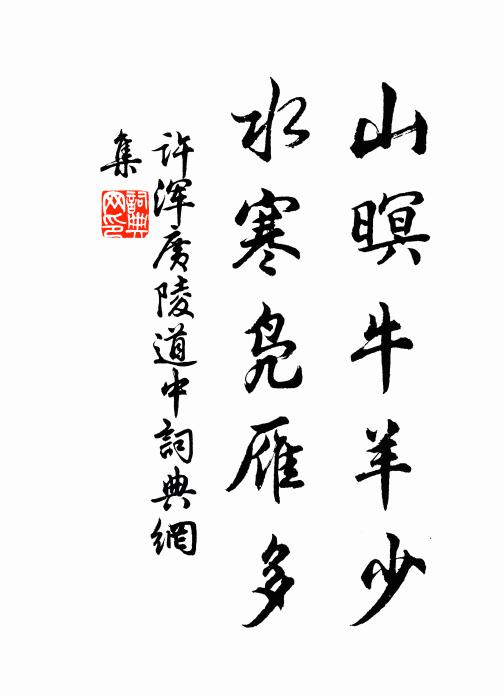 山暝牛羊少
水寒凫雁多
许浑廣陵道中詞典網
集
詞典
网印